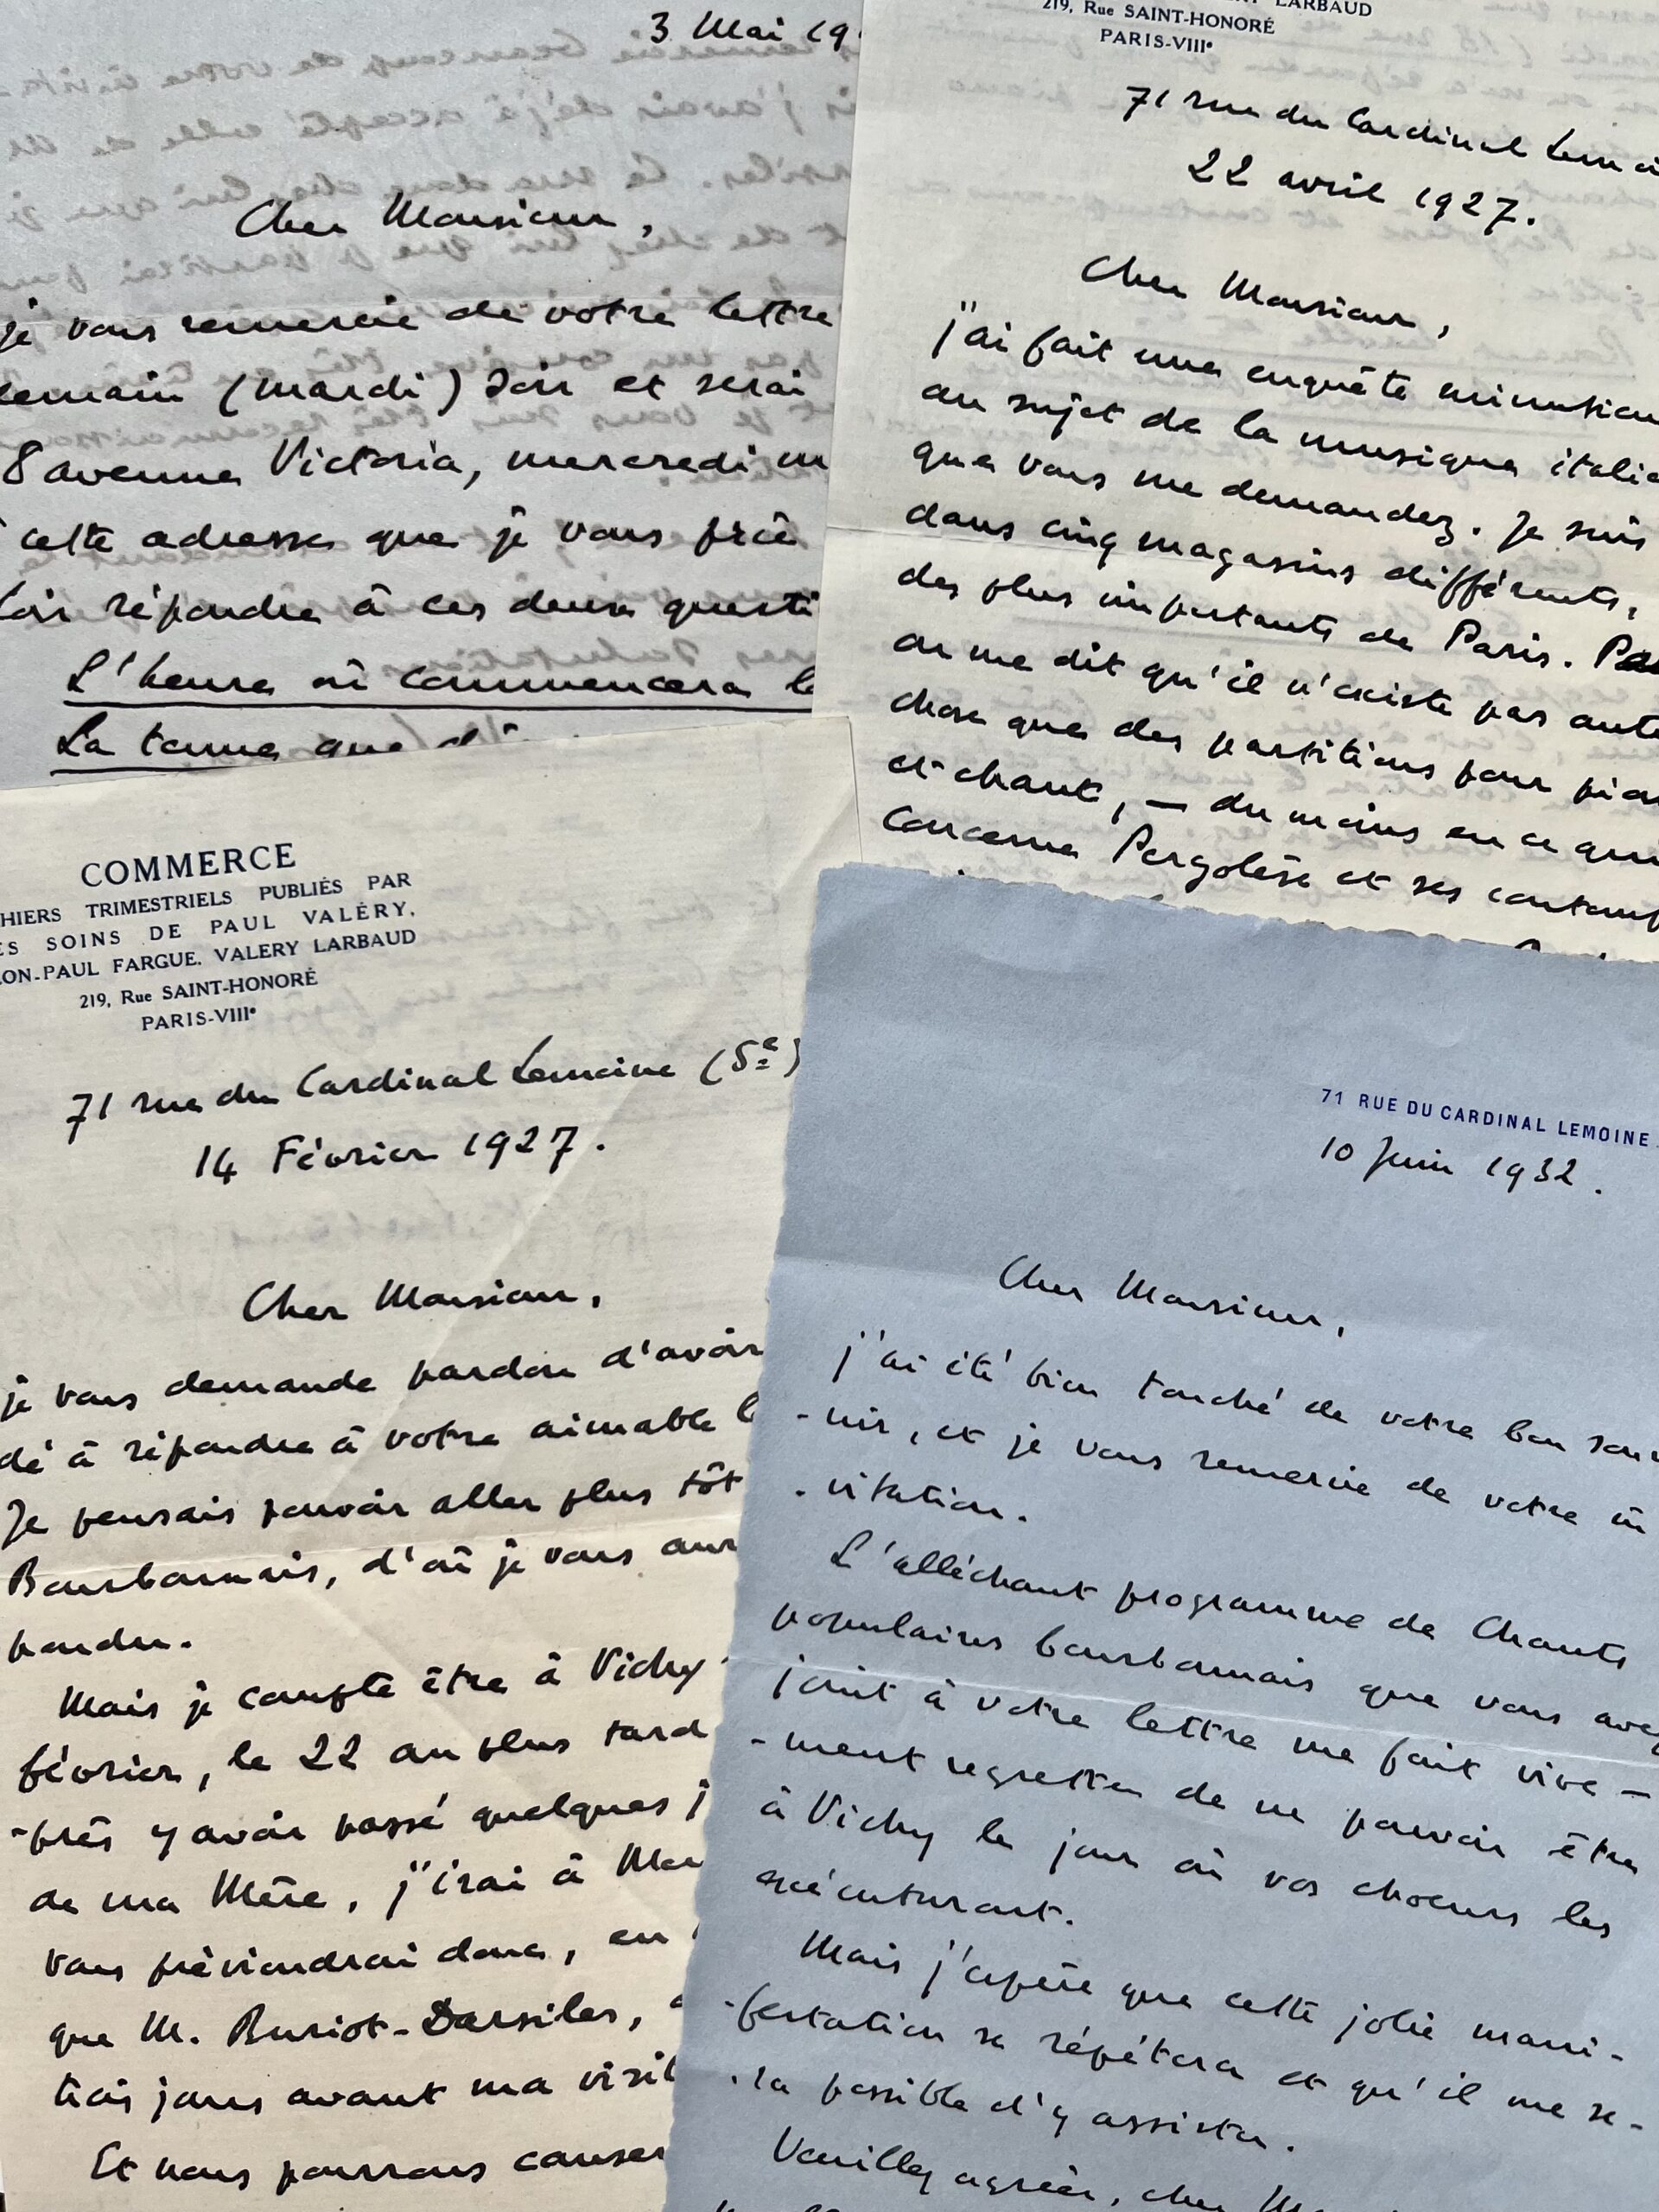 3 Mai 19
Cher Monsieur,
je vous remercie de votre lettre
demain (mardi) soir et serai
8 avenue Victoria, mercredi
cette adresse que je vous prie
répondre à ces deux questi
L'heure où commencera
La tenue que
LARBAUD
219, Rue SAINT-HONORÉ
PARIS-VIIIe
71 rue du Cardinal Lemoi
22 avril 1927.
Cher Monsieur,
j'ai fait une enquête minutieu
au sujet de la musique italie
que vous me demandez. Je suis
dans cinq magasins différents,
des plus importants de Paris.
on me dit qu'il n'existe pas autr
chose que des partitions pour pian
et chant, — du moins en ce qui
concerne Pergolèse et ses contemp
COMMERCE
HIERS TRIMESTRIELS PUBLIÉS PAR
ES SOINS DE PAUL VALÉRY,
ON-PAUL FARGUE, VALERY LARBAUD
219, Rue SAINT-HONORÉ
PARIS-VIIIe
71 rue du Cardinal Lemoine (5e)
14 Février 1927.
Cher Monsieur,
je vous demande pardon d'avoir
dé à répondre à votre aimable l
Je pensais pouvoir aller plus tôt
Bourbonnais, d'où je vous aur
pondu.
Mais je compte être à Vichy
février, le 22 au plus tard
-près y avoir passé quelques j
de ma Mère, j'irai à Mou
vous préviendrai donc, en
que M. Buriot-Darsiles,
trois jours avant ma visit
Et nous pourrons causer
71 RUE DU CARDINAL LEMOINE
10 Juin 1932.
Cher Monsieur,
j'ai été bien touché de votre bon souv
-nir, et je vous remercie de votre in
-vitation.
L'alléchant programme de Chants
populaires bourbonnais que vous avez
joint à votre lettre me fait vive-
-ment regretter de ne pouvoir être
à Vichy le jour où vos choeurs les
exécuteront.
Mais j'espère que cette jolie mani-
-festation se répétera et qu'il me se-
-ra possible d'y assister.
Veuillez agréer, cher